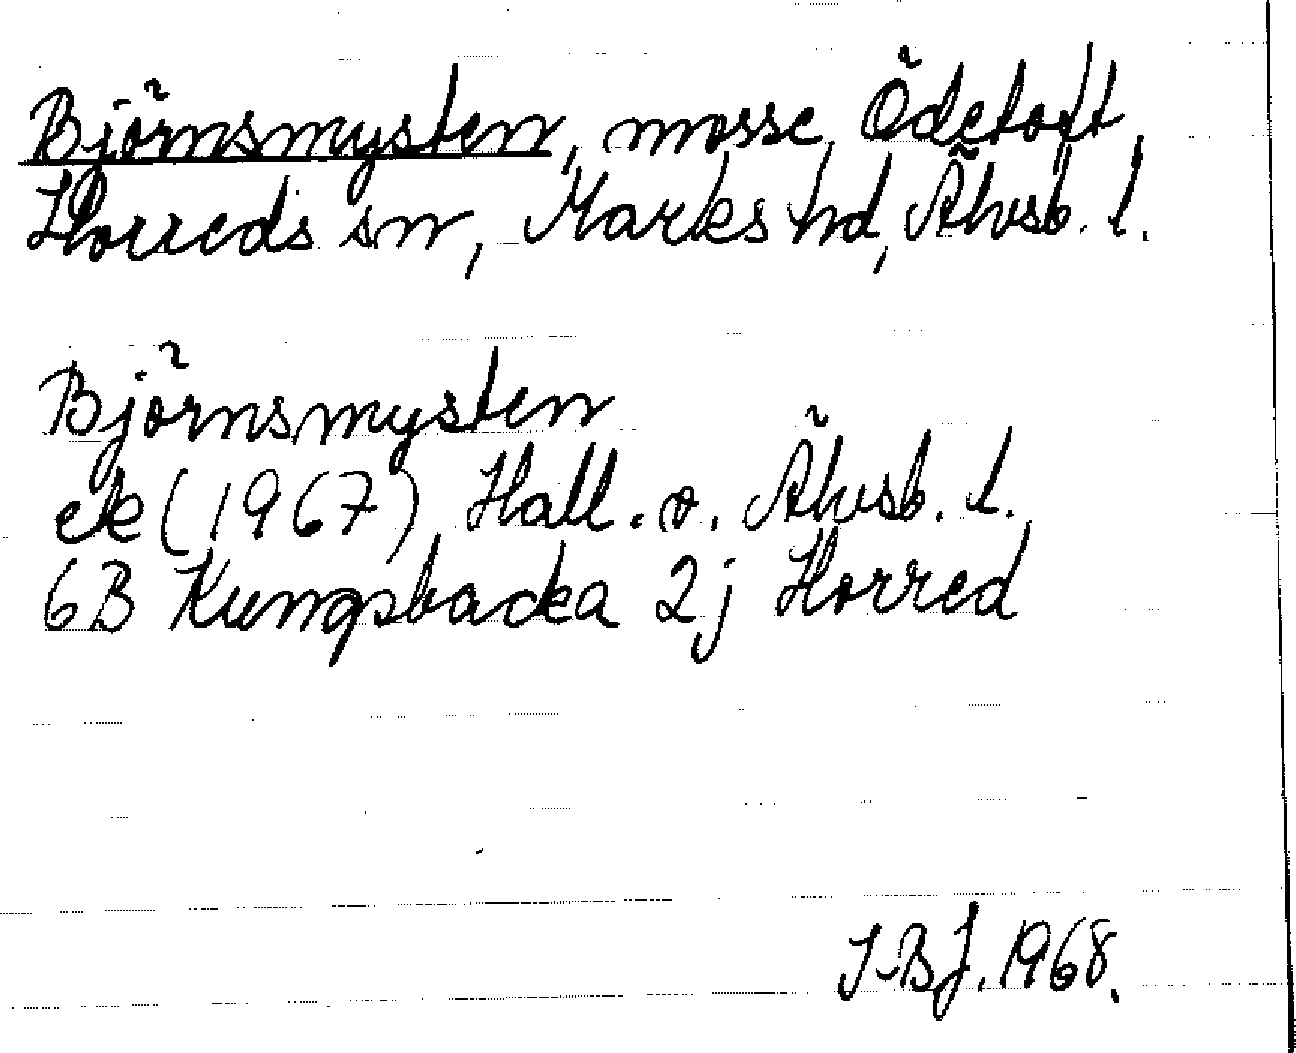 Björnsmysten, mosse, Ödetoft,
Horreds sn, Marks hd, Älvsb. l.
Björnsmysten
ek (1967) Hall. o. Älvsb. l.
6B Kungsbacka 2j Horred
I-BJ. 1968.